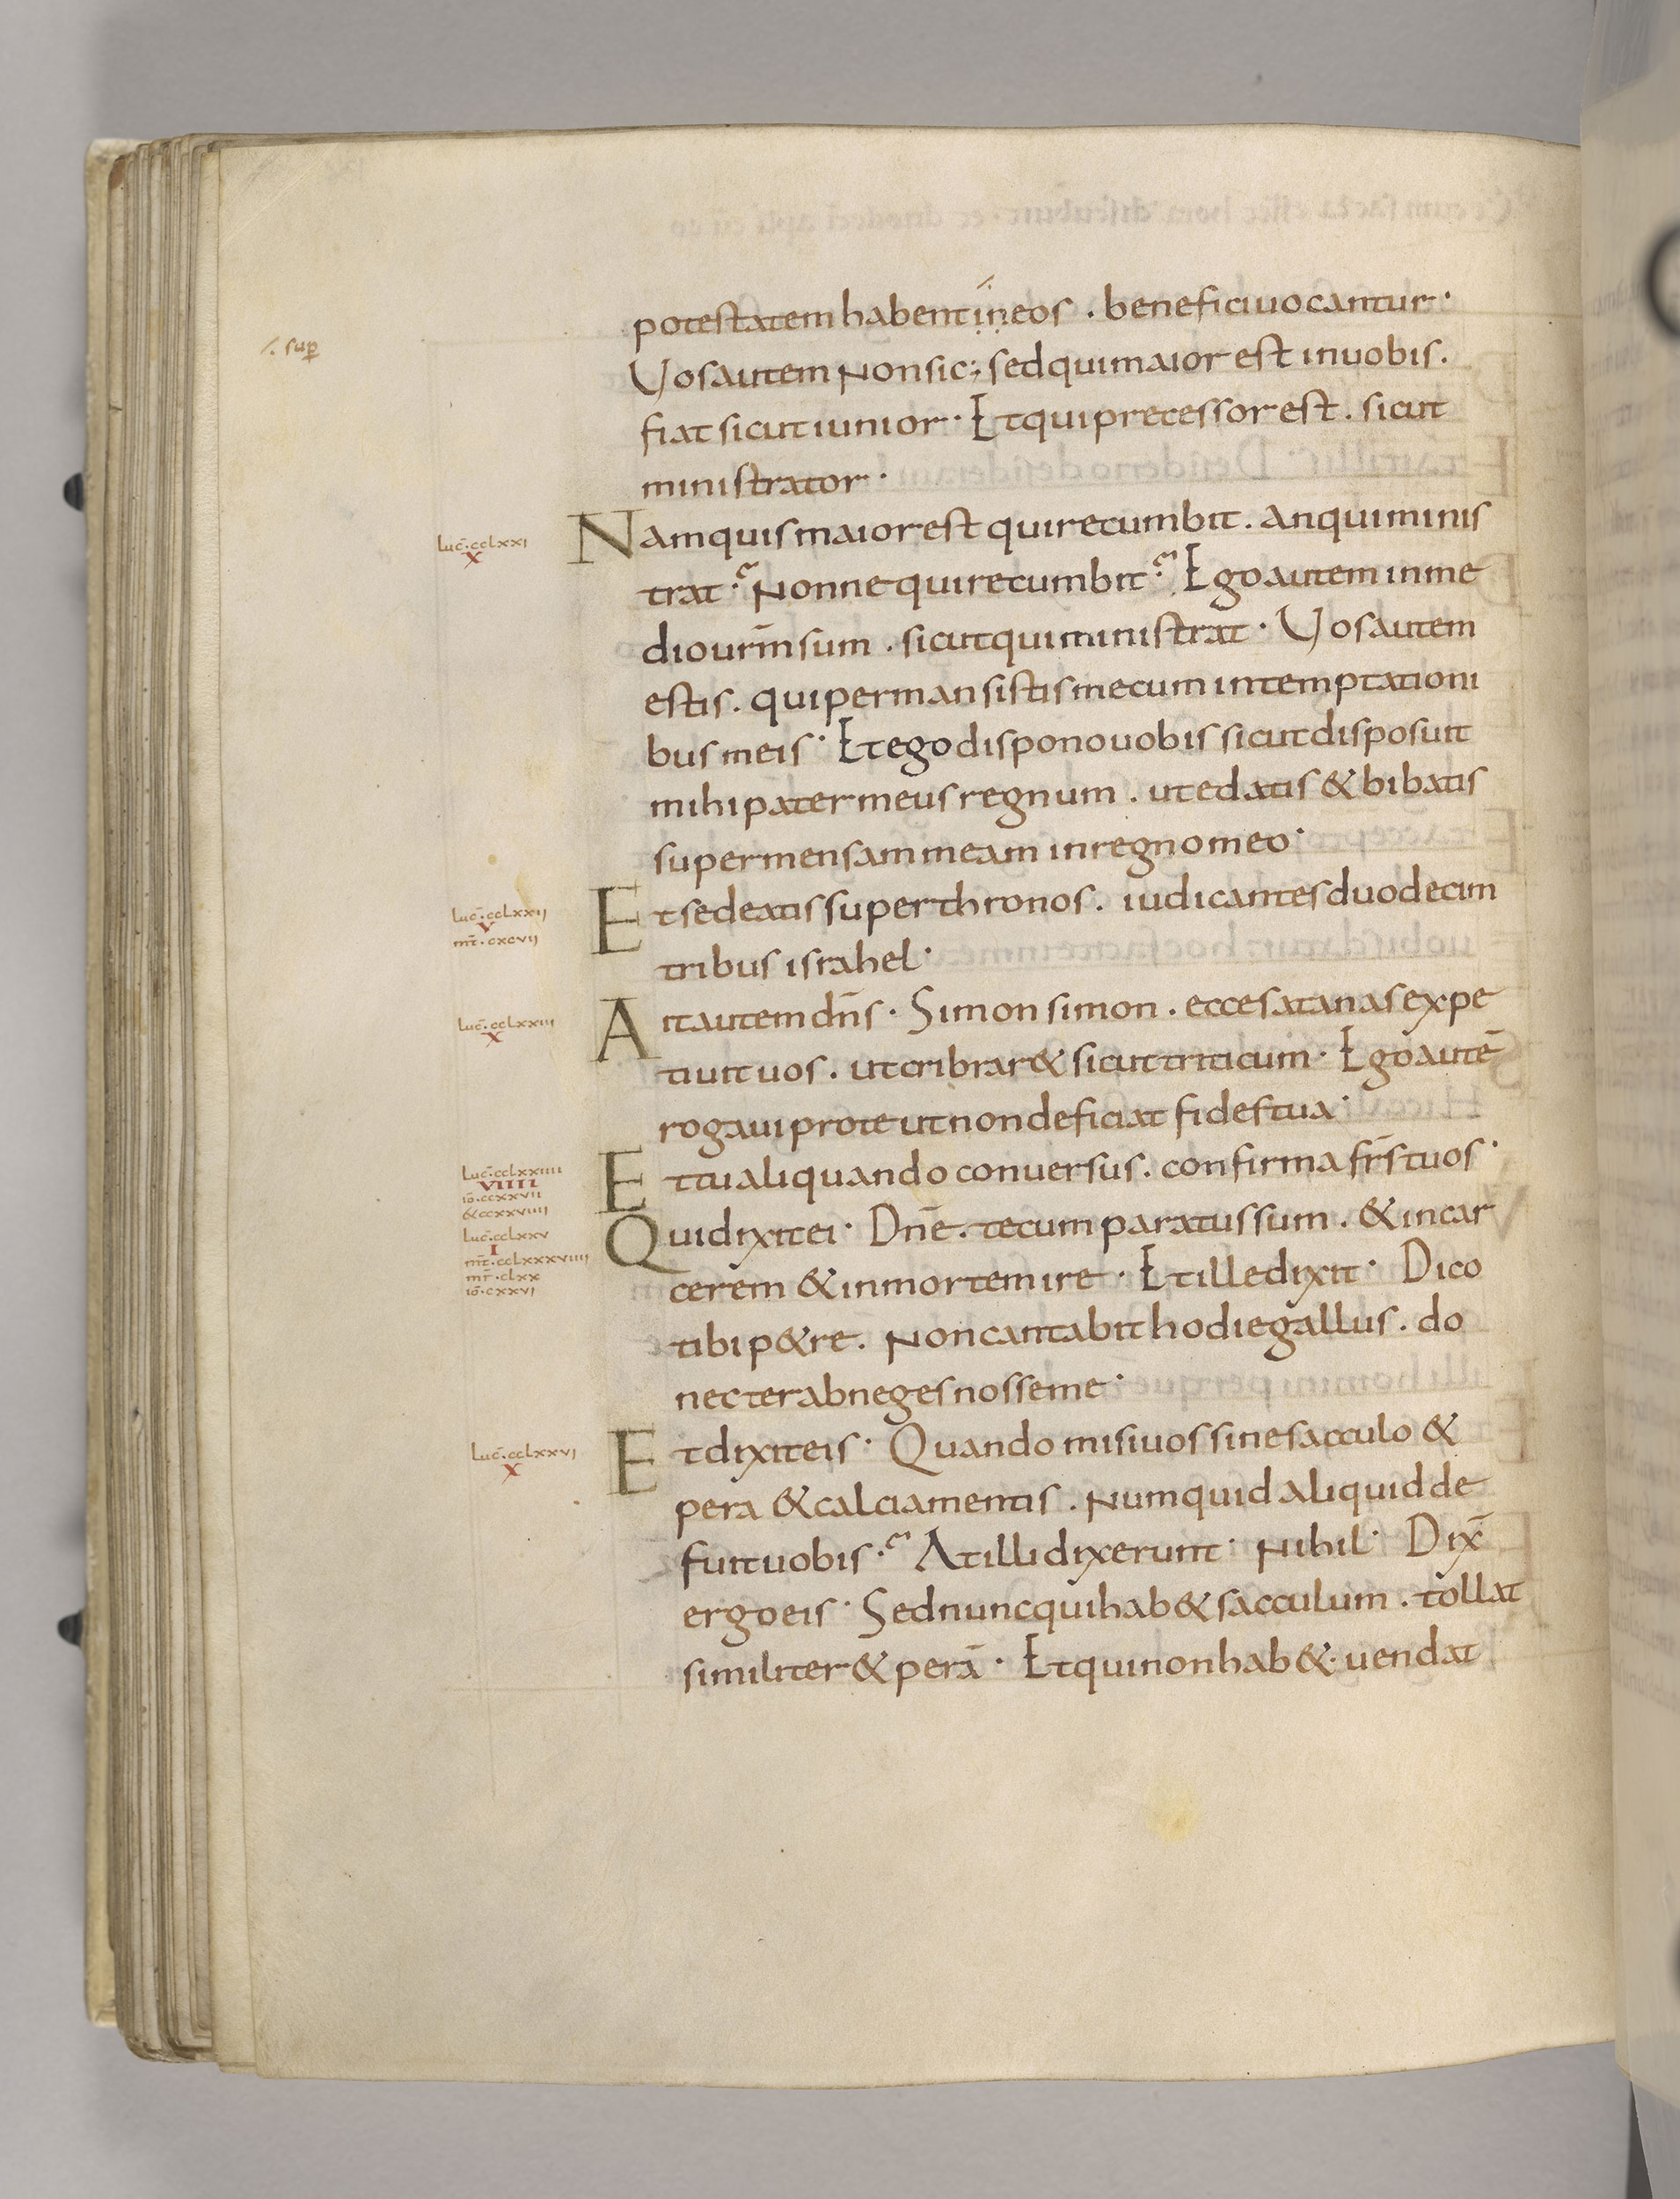 potestatem habent in eos . benefici uocantur .
/. sup̄
Uos autem non sic ; sed qui maior est in uobis .
fiat sicut iunior . Et qui precessor est . sicut
ministrator .
Luc̄ . cclxxi
X
Nam quis maior est qui recumbit . an qui minis
trat . Nonne qui recumbit . Ego autem in me
dio ur̄m sum . sicut qui ministrat . Uos autem
estis . qui permansistis mecum in temptationi
bus meis . Et ego dispono uobis sicut disposuit
mihi pater meus regnum . ut edatis & bibatis
super mensam meam in regno meo .
Luc̄ . cclxxij
V
mt̄ . cxcvij
Et sedeatis super thronos . iudicantes duodecim
tribus israhel .
Luc̄ . cclxxiii
X
Ait autem dn̄s . Simon simon . ecce satanas expe
tiuit uos . ut cribrar& sicut triticum . Ego autē
rogaui pro te ut non deficiat fides tua .
Luc̄ . cclxxiiii
VIIII
iō . ccxxvii
& ccxxviiii
Et tu aliquando conuersus . confirma fr̄s tuos .
Luc̄ . cclxxv
I
mt̄ . cclxxxviiii
mr̄ . clxx
iō . cxxvi
Qui dixit ei . Dn̄e . tecum paratus sum . & in car
cerem & in mortem ire . Et ille dixit . Dico
tibi p&re . Non cantabit hodie gallus . do
nec ter abneges nosse me .
Luc̄ . cclxxvi
X
Et dixit eis . Quando misi uos sine sacculo &
pera & calciamentis . Numquid aliquid de
fuit uobis . At illi dixerunt . Nihil . Dix̄
ergo eis . Sed nunc qui hab& sacculum . tollat
similiter & perā . Et qui non hab& . uendat